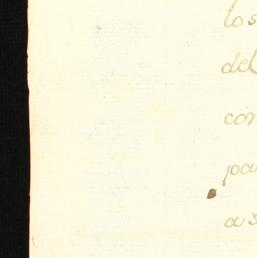 los
del
con
pa
as